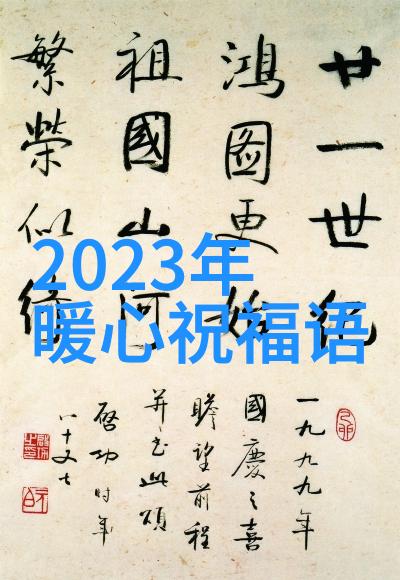 廿一世紀
鴻圖更始
祖國山河
繁榮似
一九九九年
國慶之喜
瞻望前程
并書此頌
啓功時年
八十又七
2023年
暖心祝福语